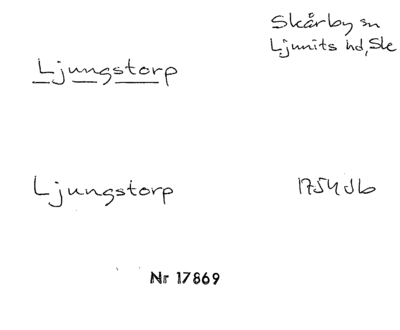 Skårby sn
Ljunits hd, Ske
Ljungstorp
Ljungstorp
1754 Jb
Nr 17869